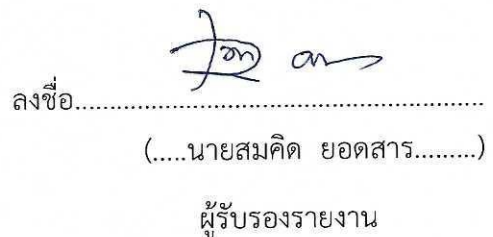 ลงชื่อ......................................................
(.....นายสมคิด ยอดสาร.........)
ผู้รับรองรายงาน